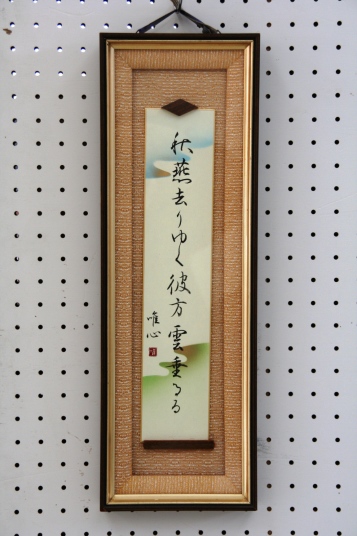 秋燕去りゆく彼方雲垂るる
唯心